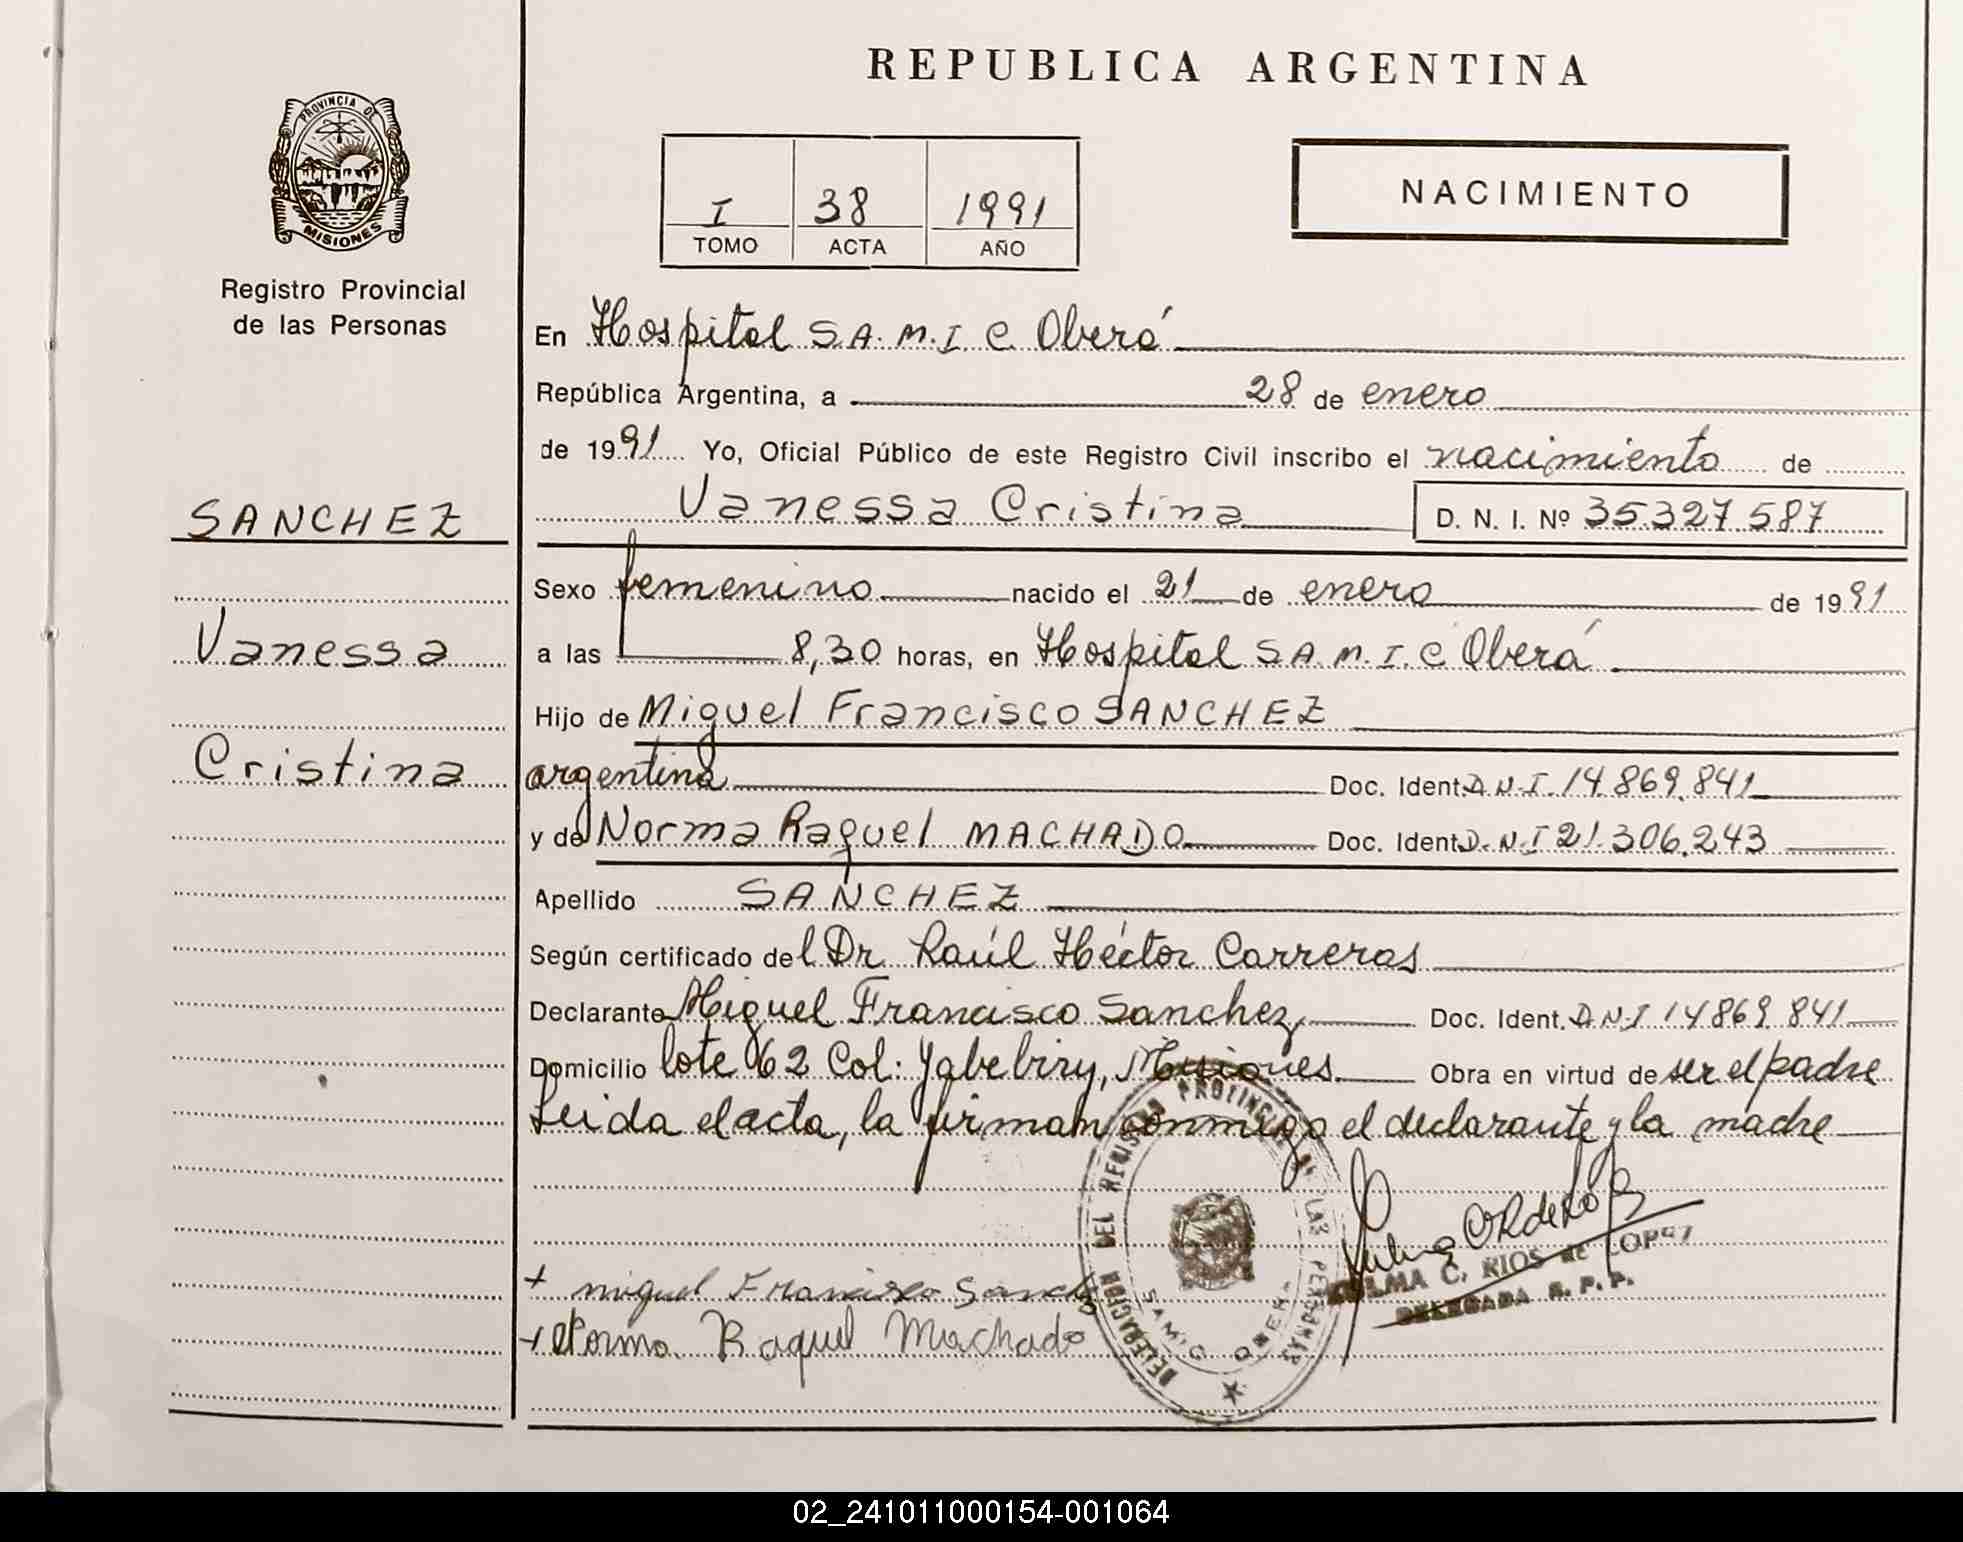 REPUBLICA ARGENTINA
PROVINCIA DE
MISIONES
Registro Provincial
de las Personas
I 38 1991
TOMO ACTA AÑO
NACIMIENTO
SANCHEZ
Vanessa
Cristina
En Hospital S.A.M.I.C. Oberá
República Argentina, a 28 de enero
de 1991 Yo, Oficial Público de este Registro Civil inscribo el nacimiento de
Vanessa Cristina D. N. I. Nº 35.327.587
Sexo femenino nacido el 21 de enero de 1991
a las 8,30 horas, en Hospital S.A.M.I.C Oberá
Hijo de Miguel Francisco SANCHEZ
argentina Doc. Ident. D.N.I. 14.869.841
y de Norma Raquel MACHADO Doc. Ident. D.N.I 21.306.243
Apellido SANCHEZ
Según certificado del Dr. Raúl Héctor Carreras
Declarante Miguel Francisco Sanchez, Doc. Ident. D.N.I 14869.841
Domicilio lote 62 Col: Yabebiry, Misiones. Obra en virtud de ser el padre
Leida el acta, la firman conmigo el declarante y la madre
+ miguel Francisco Sanchez
+ Norma Raquel Machado
DELEGACION DEL REGISTRO PROVINCIAL DE LAS PERSONAS
SAMIC OBERA
C. RIOS de LOPEZ
DELEGADA R. P. P.
02_241011000154-001064